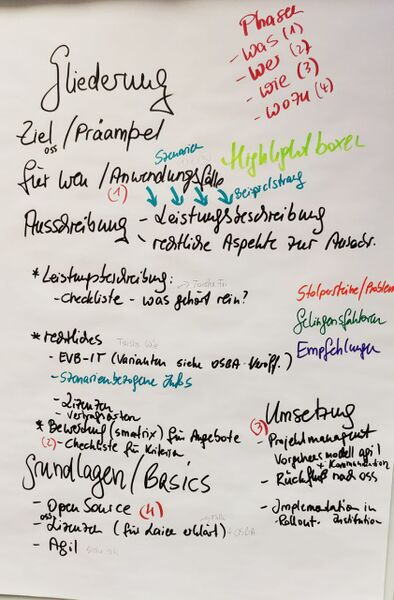 Phasen
- was (1)
- wer (2)
- wie (3)
- wozu (4)
Gliederung
Ziel / Präampel
oss
Szenarien
Highlightboxen
für wen / Anwendungsfälle
(1)
Beispielstrang
Ausschreibung - Leistungsbeschreibung
- rechtliche Aspekte zur Aussch.
* Leistungsbeschreibung:
- Checkliste - was gehört rein?
Stolpersteine/Probleme
Gelingensfaktoren
Empfehlungen
* rechtliches
- EVB-IT (Varianten siehe OSBA-Veröff.)
- Szenarienbezogene Infos
- Lizenzen
- Vertragsarten
* Bewertung(smatrix) für Angebote
(2) - Checkliste für Kriterien
Umsetzung
(3)
- Projektmanagement
Vorgehensmodell agil
+ Kommunikation
- Rückfluß nach oss
- Implementation in
- Rollout Institution
Grundlagen / Basics
- Open Source (4)
- oss Lizenzen (für Laien erklärt) + OSBA
- Agil